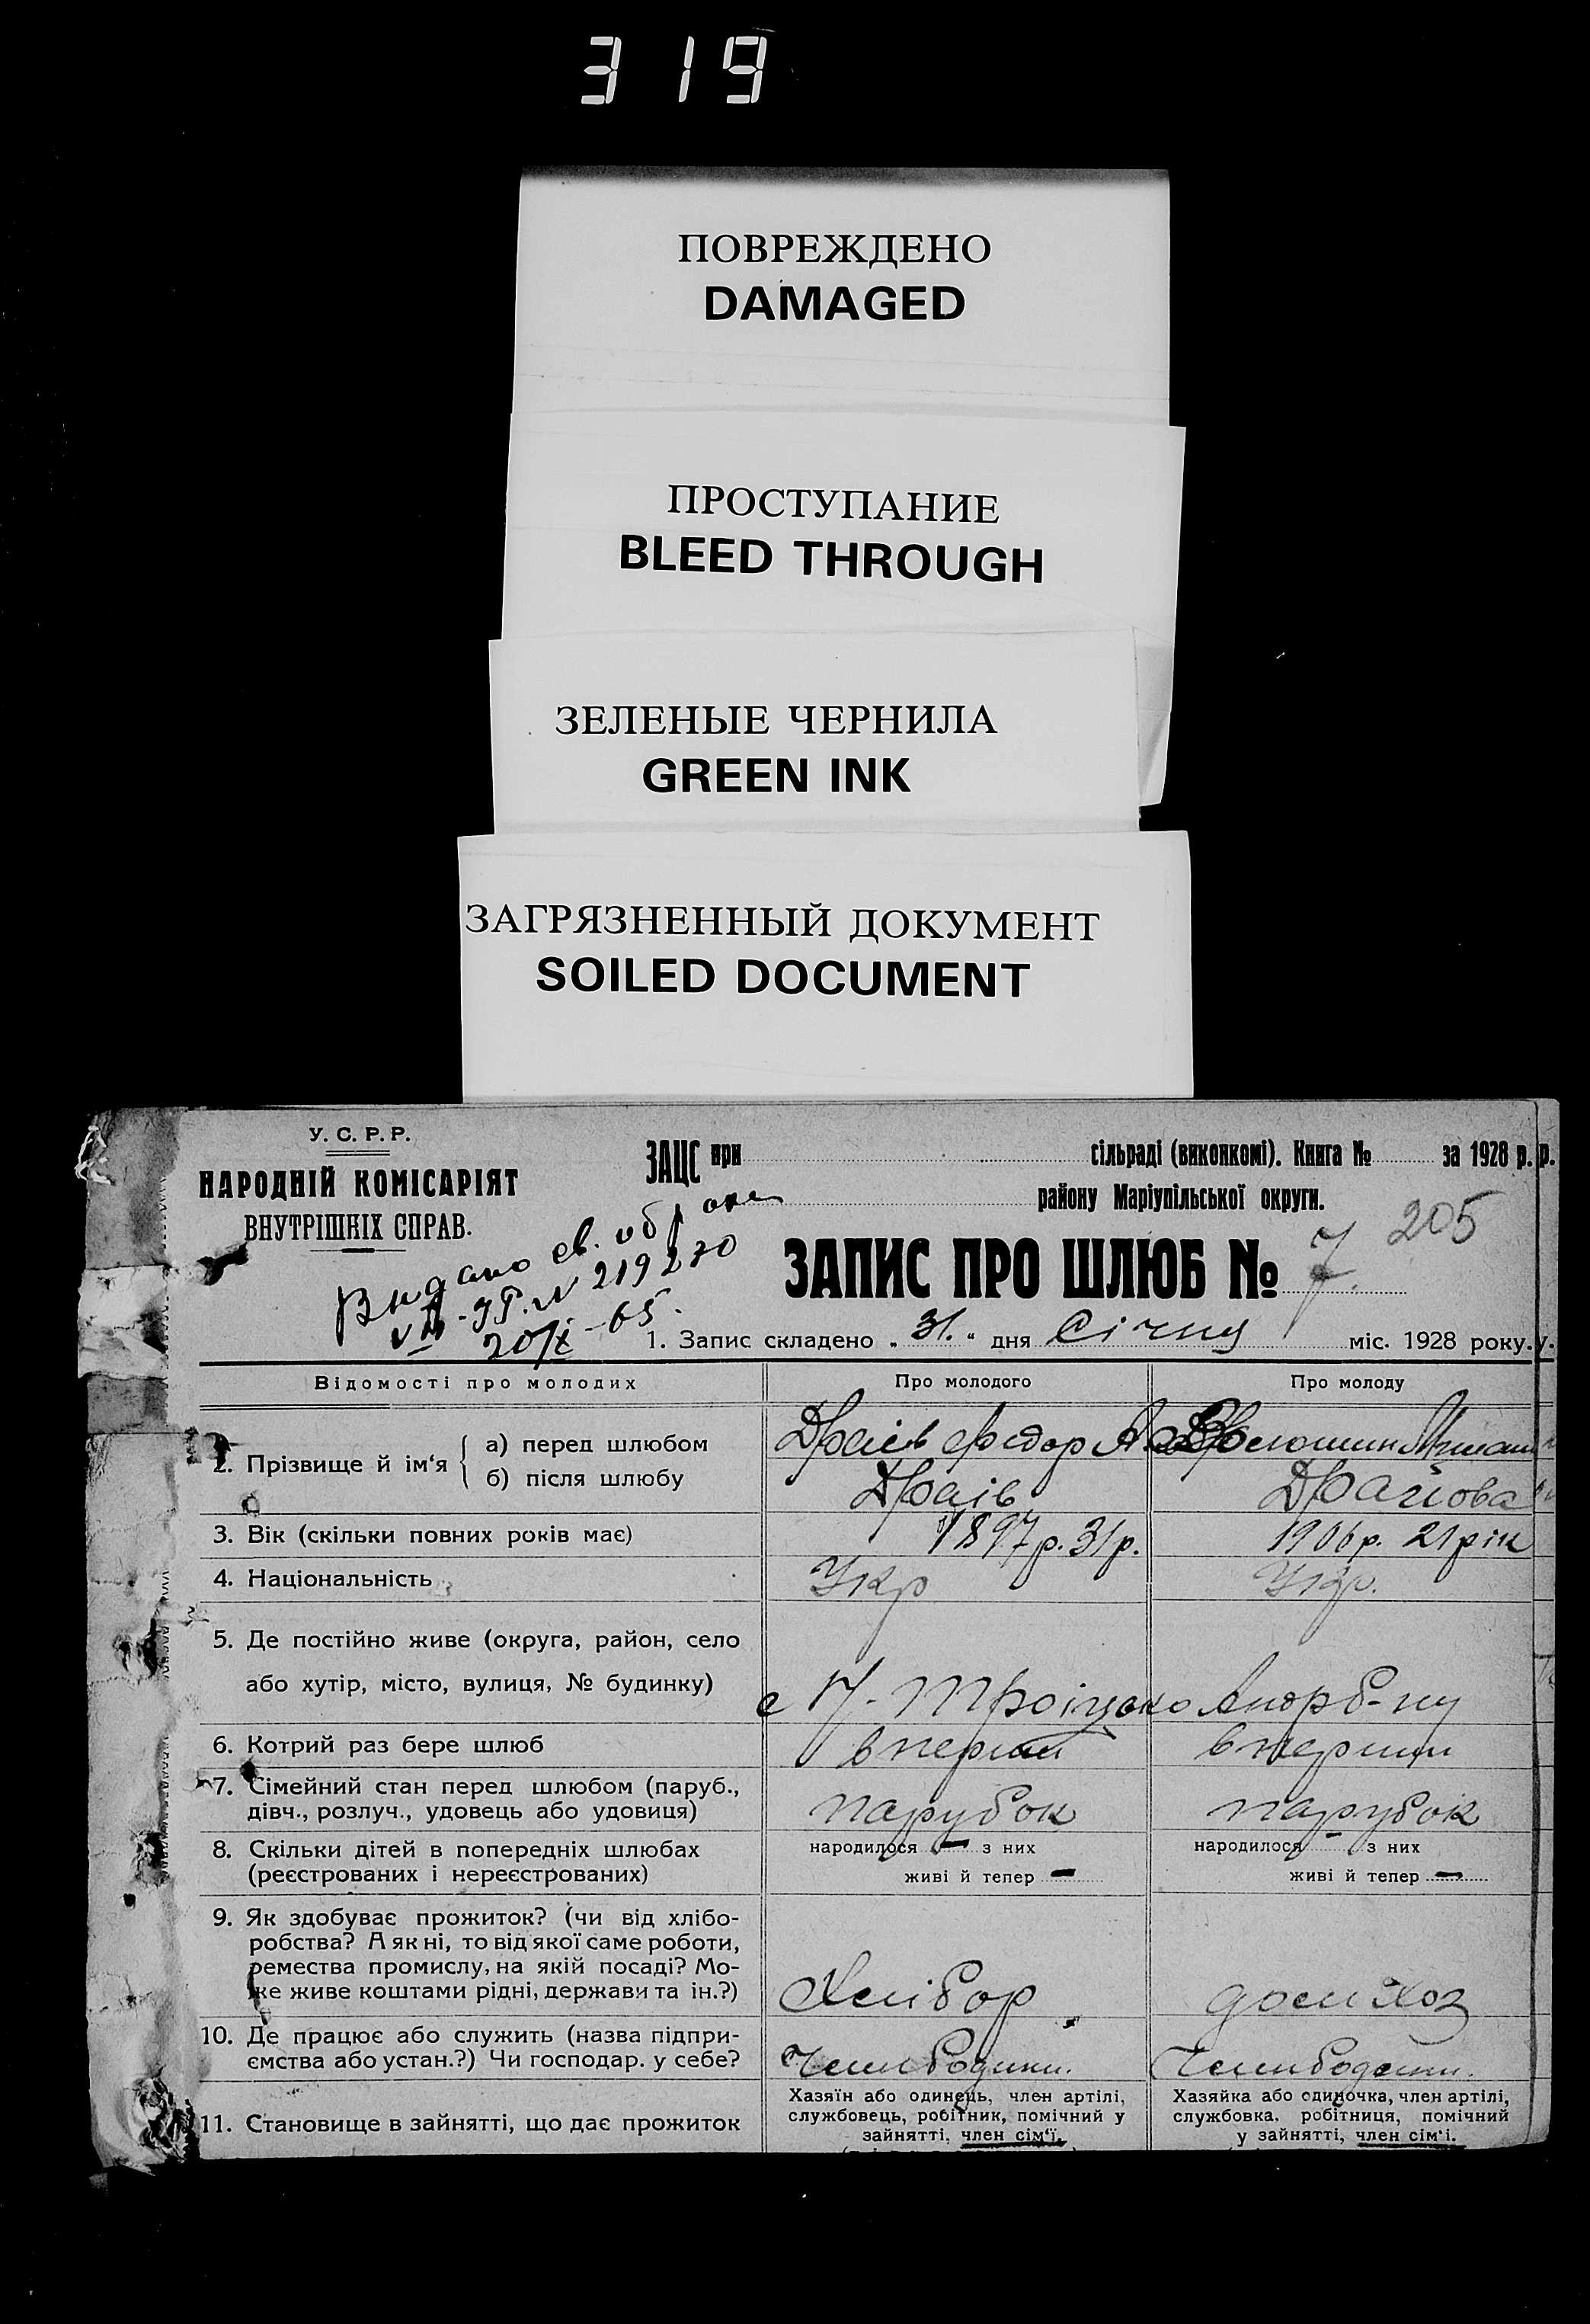 319
ПОВРЕЖДЕНО
DAMAGED
ПРОСТУПАНИЕ
BLEED THROUGH
ЗЕЛЕНЫЕ ЧЕРНИЛА
GREEN INK
ЗАГРЯЗНЕННЫЙ ДОКУМЕНТ
SOILED DOCUMENT
У. С. Р. Р.
НАРОДНІЙ КОМІСАРІЯТ
ВНУТРІШНІХ СПРАВ.
ЗАЦС при сільраді (виконкомі). Книга № за 1928 р. р.
району Маріупільської округи.
205
Видано св.
№ 219270
20/X-65.
ЗАПИС ПРО ШЛЮБ № 7.
1. Запис складено „ 31. “ дня Січня міс. 1928 року. у.
Відомості про молодих
Про молодого
Про молоду
2. Прізвище й ім‘я { а) перед шлюбом
б) після шлюбу
Драів Федор
Драів
Драйова
3. Вік (скільки повних років має)
1897 р. 31 р.
1906 р. 21 рік
4. Національність
Укр
Укр.
5. Де постійно живе (округа, район, село
або хутір, місто, вулиця, № будинку)
с Троіцько
6. Котрий раз бере шлюб
вперший
вперший
7. Сімейний стан перед шлюбом (паруб.,
дівч., розлуч., удовець або удовиця)
парубок
парубок
8. Скільки дітей в попередніх шлюбах
(реєстрованих і нереєстрованих)
народилося — з них
живі й тепер —
народилося - з них
живі й тепер —
9. Як здобуває прожиток? (чи від хлібо-
робства? А як ні, то від якої саме роботи,
ремества промислу, на якій посаді? Мо-
же живе коштами рідні, держави та ін.?)
Хлібор
дом хоз
10. Де працює або служить (назва підпри-
ємства або устан.?) Чи господар. у себе?
11. Становище в зайнятті, що дає прожиток
Хазяїн або одинець, член артілі,
службовець, робітник, помічний у
зайнятті, член сім‘ї.
Хазяйка або одиночка, член артілі,
службовка, робітниця, помічний
у зайнятті, член сім‘ї.